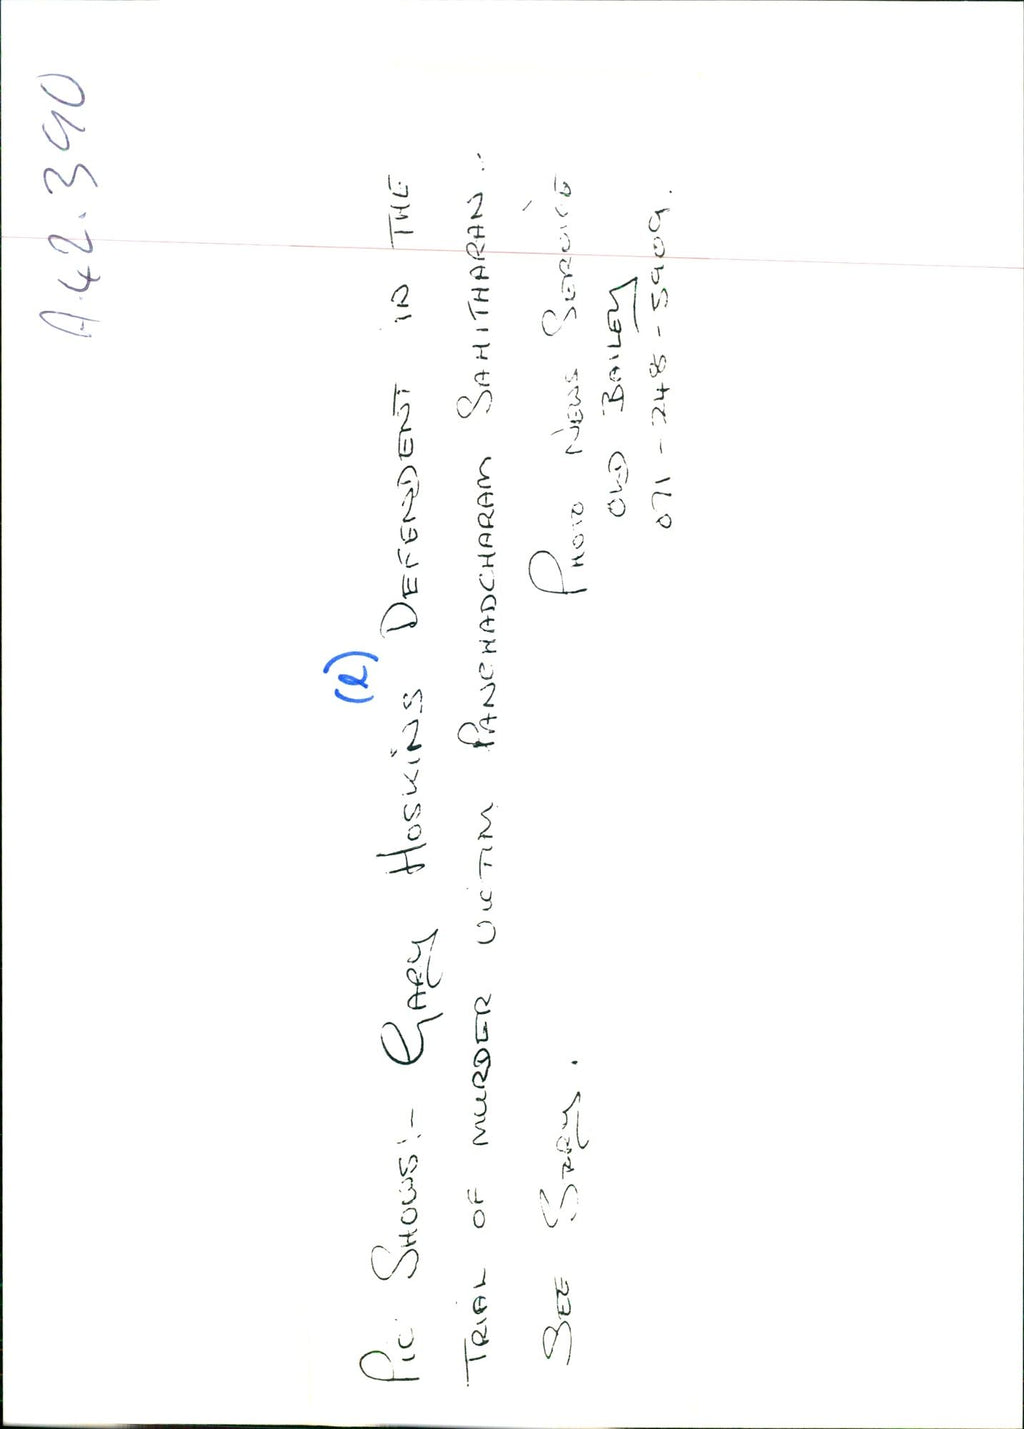 A42.390
(L)
Pic Shows:- Gary Hoskins Defendent in the
Trial of murder victim Panchadcharam Sahitharan..
See Story.
Photo News Service
Old Bailey
071-248-5909.